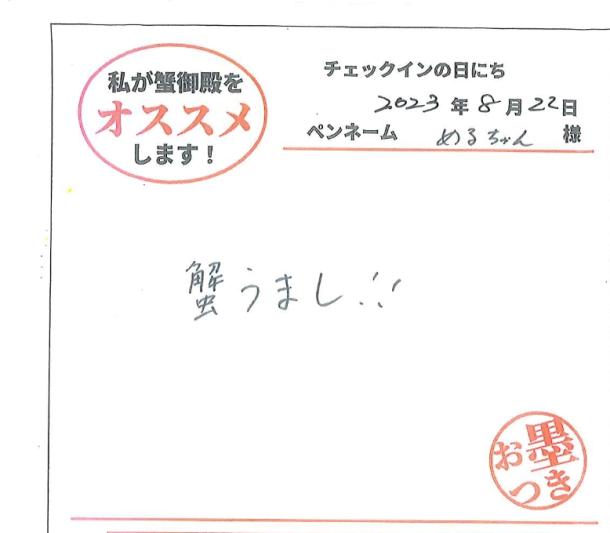 私が蟹御殿を
オススメ
します！
チェックインの日にち
2023年8月22日
ペンネーム めるちゃん 様
蟹うまし!!
お墨
つき